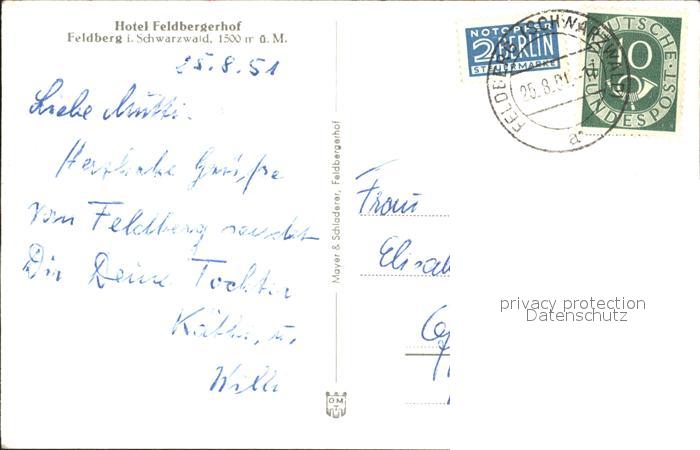 Hotel Feldbergerhof
Feldberg i. Schwarzwald, 1500 m ü. M.
25.8.51
Liebe Mutti.
Herzliche Grüße
von Feldberg sendet
Dir Deine Tochter
Käthi, u.
Willi
Mayer & Schladerer, Feldbergerhof
NOTOPFER
2 BERLIN
STEUERMARKE
FELDBERG (SCHWARZWALD)
25.8.51
a
DEUTSCHE
10
BUNDESPOST
Frau
privacy protection
Datenschutz